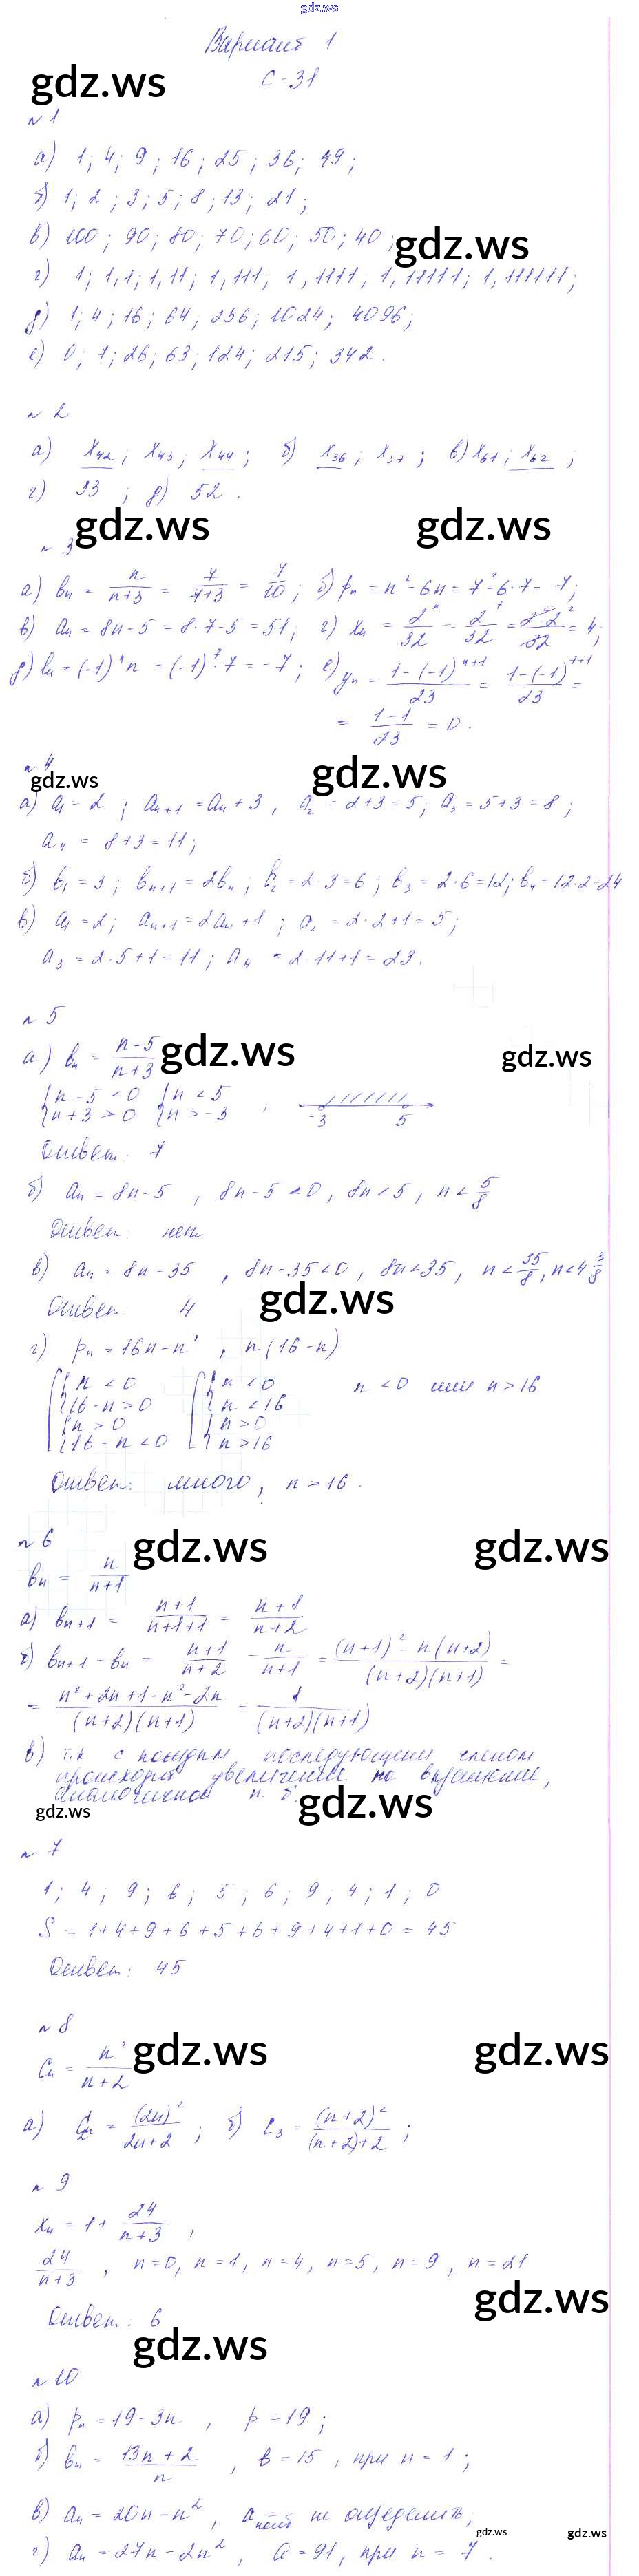 gdz.ws
Вариант 1
gdz.ws
С-31
№ 1
а) 1; 4; 9; 16; 25; 36; 49;
б) 1; 2; 3; 5; 8; 13; 21;
в) 100; 90; 80; 70; 60; 50; 40;
gdz.ws
г) 1; 1,1; 1,11; 1,111; 1,1111, 1,11111; 1,111111;
д) 1; 4; 16; 64; 256; 1024; 4096;
е) 0; 7; 26; 63; 124; 215; 342.
№ 2
а) x₄₂; x₄₃; x₄₄; б) x₃₆; x₃₇; в) x₆₁; x₆₂;
г) 33; д) 52.
gdz.ws gdz.ws
№ 3
а) bₙ = n/(n+3) = 7/(7+3) = 7/10; б) pₙ = n²-6n = 7²-6·7 = 7;
в) aₙ = 8n-5 = 8·7-5 = 51; г) xₙ = 2ⁿ/32 = 2⁷/32 = 2⁵·2²/32 = 4;
д) lₙ = (-1)ⁿn = (-1)⁷·7 = -7; е) yₙ = (1-(-1)ⁿ⁺¹)/23 = (1-(-1)⁷⁺¹)/23 =
= (1-1)/23 = 0.
№ 4
gdz.ws gdz.ws
а) a₁ = 2; aₙ₊₁ = aₙ+3, a₂ = 2+3 = 5; a₃ = 5+3 = 8;
a₄ = 8+3 = 11;
б) b₁ = 3; bₙ₊₁ = 2bₙ; b₂ = 2·3 = 6; b₃ = 2·6 = 12; b₄ = 12·2 = 24
в) a₁ = 2; aₙ₊₁ = 2aₙ+1; a₂ = 2·2+1 = 5;
a₃ = 2·5+1 = 11; a₄ = 2·11+1 = 23.
№ 5
а) bₙ = (n-5)/(n+3)
gdz.ws gdz.ws
{n-5 < 0 {n < 5
{n+3 > 0 {n > -3 , -3 5
Ответ: 7
б) aₙ = 8n-5, 8n-5 < 0, 8n < 5, n < 5/8
Ответ: нет
в) aₙ = 8n-35, 8n-35 < 0, 8n < 35, n < 35/8, n < 4 3/8
Ответ: 4
gdz.ws
г) pₙ = 16n-n², n(16-n)
[{n < 0 [{n < 0 n < 0 или n > 16
{16-n > 0 {n < 16
{n > 0 {n > 0
{16-n < 0 {n > 16
Ответ: много, n > 16.
№ 6
gdz.ws gdz.ws
bₙ = n/(n+1)
а) bₙ₊₁ = (n+1)/(n+1+1) = (n+1)/(n+2)
б) bₙ₊₁ - bₙ = (n+1)/(n+2) - n/(n+1) = ((n+1)² - n(n+2))/((n+2)(n+1)) =
= (n²+2n+1-n²-2n)/((n+2)(n+1)) = 1/((n+2)(n+1))
в) т.к с каждым последующим членом
происходит увеличение на выражение,
аналогичное п. б.
gdz.ws gdz.ws
№ 7
1; 4; 9; 6; 5; 6; 9; 4; 1; 0
S = 1+4+9+6+5+6+9+4+1+0 = 45
Ответ: 45
№ 8
gdz.ws gdz.ws
Cₙ = n²/(n+2)
а) C₂ₙ = (2n)²/(2n+2); б) C₃ = (n+2)²/((n+2)+2);
№ 9
xₙ = 1+ 24/(n+3),
24/(n+3), n=0, n=1, n=4, n=5, n=9, n=21
gdz.ws
Ответ: 6
gdz.ws
№ 10
а) pₙ = 19-3n, p = 19;
б) bₙ = (13n+2)/n, b = 15, при n = 1;
в) aₙ = 20n-n², a наиб = не определить,
gdz.ws gdz.ws
г) aₙ = 27n-2n², a = 91, при n = 7.